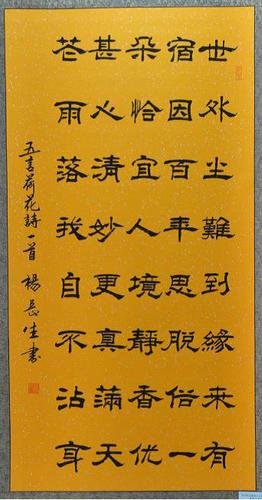 世外尘難到緣来有
宿因百年思脱俗一
朵恰宜人境靜香优
甚心清妙更真滿天
花雨落我自不沾身
五言荷花詩一首 楊長生書